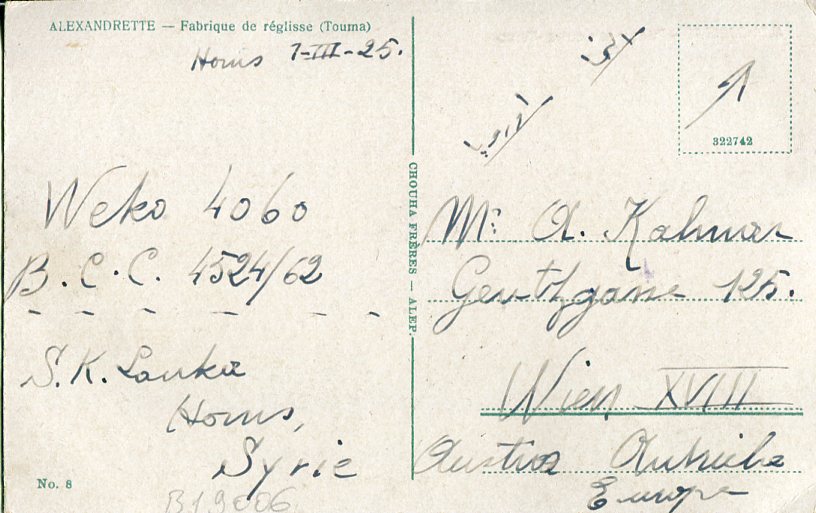 ALEXANDRETTE — Fabrique de réglisse (Touma)
Homs 1-III-25.
Weko 4060
B.C.C. 4524/62
S.K. Lanka
Homs,
Syrie
No. 8
B19006
CHOUHA FRÈRES — ALEP.
322742
Mr. A.
125.
Wien XVIII
Austria Autriche
Europe